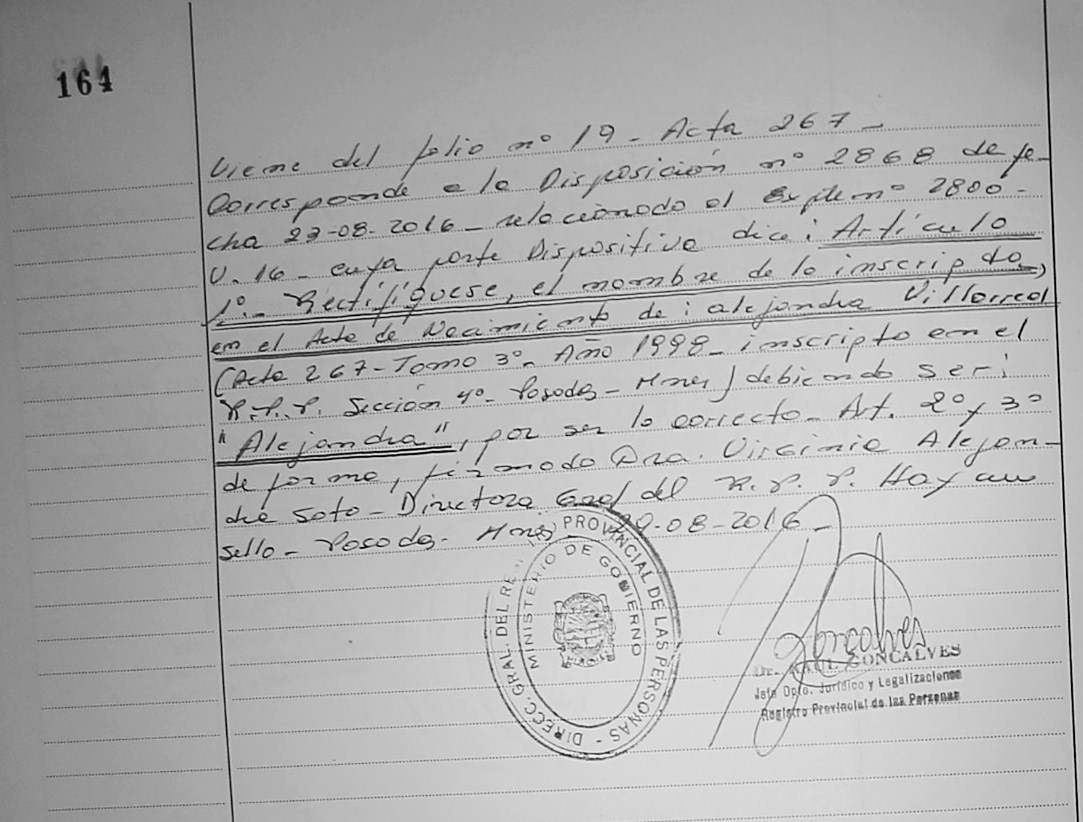 164
Viene del folio nº 19 - Acta 267 -
Corresponde a la Disposición nº 2868 de fe-
cha 22-08-2016 - relacionado al Expte nº 2800 -
V. 16 - cuya parte Dispositiva dice: Artículo
1º - Rectifíquese, el nombre de la inscripta,
en el Acta de Nacimiento de: alejandra Villarreal
(Acta 267 - Tomo 3º - Año 1998 - inscripto en el
R.P.P. Sección 4º - Posadas - Mnes) debiendo ser:
"Alejandra", por ser lo correcto - Art. 2º y 3º
de forma, firmado Dra. Virginia Alejan-
dra Soto - Directora Gral del R.P.P. Hay un
sello - Posadas - Mnes, 29-08-2016 -
PROVINCIAL DE LAS PERSONAS - DIRECC. GRAL. DEL RE
MINISTERIO DE GOBIERNO
Goncalves
GONCALVES
Jefe Dpto. Jurídico y Legalizaciones
Registro Provincial de las Personas